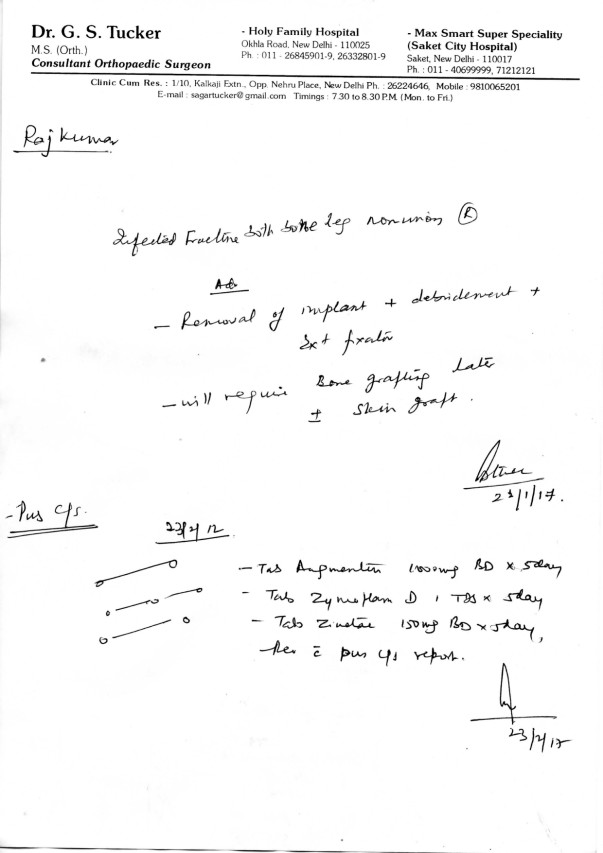 Dr. G. S. Tucker
M.S. (Orth.)
Consultant Orthopaedic Surgeon
- Holy Family Hospital
Okhla Road, New Delhi - 110025
Ph. : 011 - 26845901-9, 26332801-9
- Max Smart Super Speciality
(Saket City Hospital)
Saket, New Delhi - 110017
Ph. : 011 - 40699999, 71212121
Clinic Cum Res. : 1/10, Kalkaji Extn., Opp. Nehru Place, New Delhi Ph. : 26224646, Mobile : 9810065201
E-mail : sagartucker@gmail.com Timings : 7.30 to 8.30 P.M. (Mon. to Fri.)
Raj Kumar
Infected Fracture both bone leg nonunion Ⓡ
Adv
- Removal of implant + debridement +
Ext fixator
- will require Bone grafting later
± skin graft.
/1/17.
- Pus c/s.
- Tab Augmentin 1000mg BD x 5day
- Tab Zymoflam D 1 TDS x 5day
- Tab 150mg BD x 5day,
Rev c̄ pus c/s report.
23/2/17